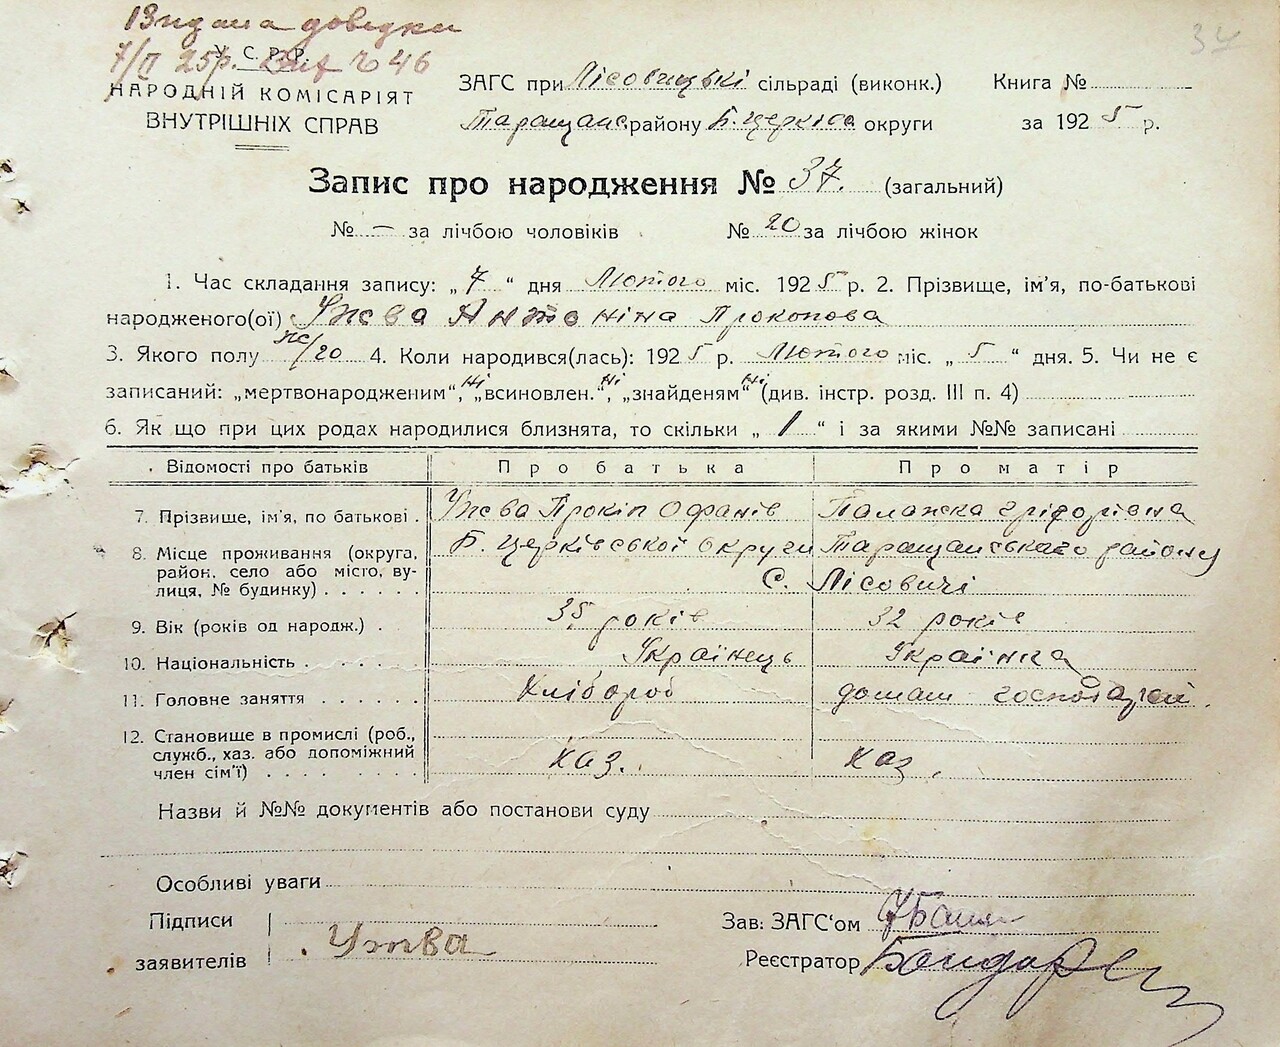 Видана довідка
7/II 25р. № 46
37
У.С.Р.Р.
НАРОДНІЙ КОМІСАРІЯТ
ВНУТРІШНІХ СПРАВ
ЗАГС при Лісовицькі сільраді (виконк.) Книга №
Таращанс. району Б. церківс. округи за 1925 р.
Запис про народження № 37. (загальний)
№ — за лічбою чоловіків № 20 за лічбою жінок
1. Час складання запису: „7“ дня Лютого міс. 1925 р. 2. Прізвище, ім'я, по-батькові
народженого(ої) Ужва Антоніна Прокопова
3. Якого полу ж/20 4. Коли народився(лась): 1925 р. Лютого міс. „5“ дня. 5. Чи не є
записаний: „мертвонародженим“, Ні „всиновлен.“, Ні „знайденям“ Ні (див. інстр. розд. III п. 4)
6. Як що при цих родах народилися близнята, то скільки „1“ і за якими №№ записані
Відомості про батьків Про батька Про матір
7. Прізвище, ім'я, по батькові . Ужва Прокіп Офанів Палажка Григорівна
8. Місце проживання (округа, район, село або місто, вулиця, № будинку) Б. Церківської округи Таращанського району
С. Лісовичі
9. Вік (років од народж.) . 35 років 32 років
10. Національність Українець Українка
11. Головне заняття Хлібороб домаш господарсв.
12. Становище в промислі (роб.,
служб., хаз. або допоміжний
член сім'ї) Хаз. Хаз.
Назви й №№ документів або постанови суду
Особливі уваги
Підписи
заявителів Ужва
Зав: ЗАГС‘ом
Реєстратор Бондар